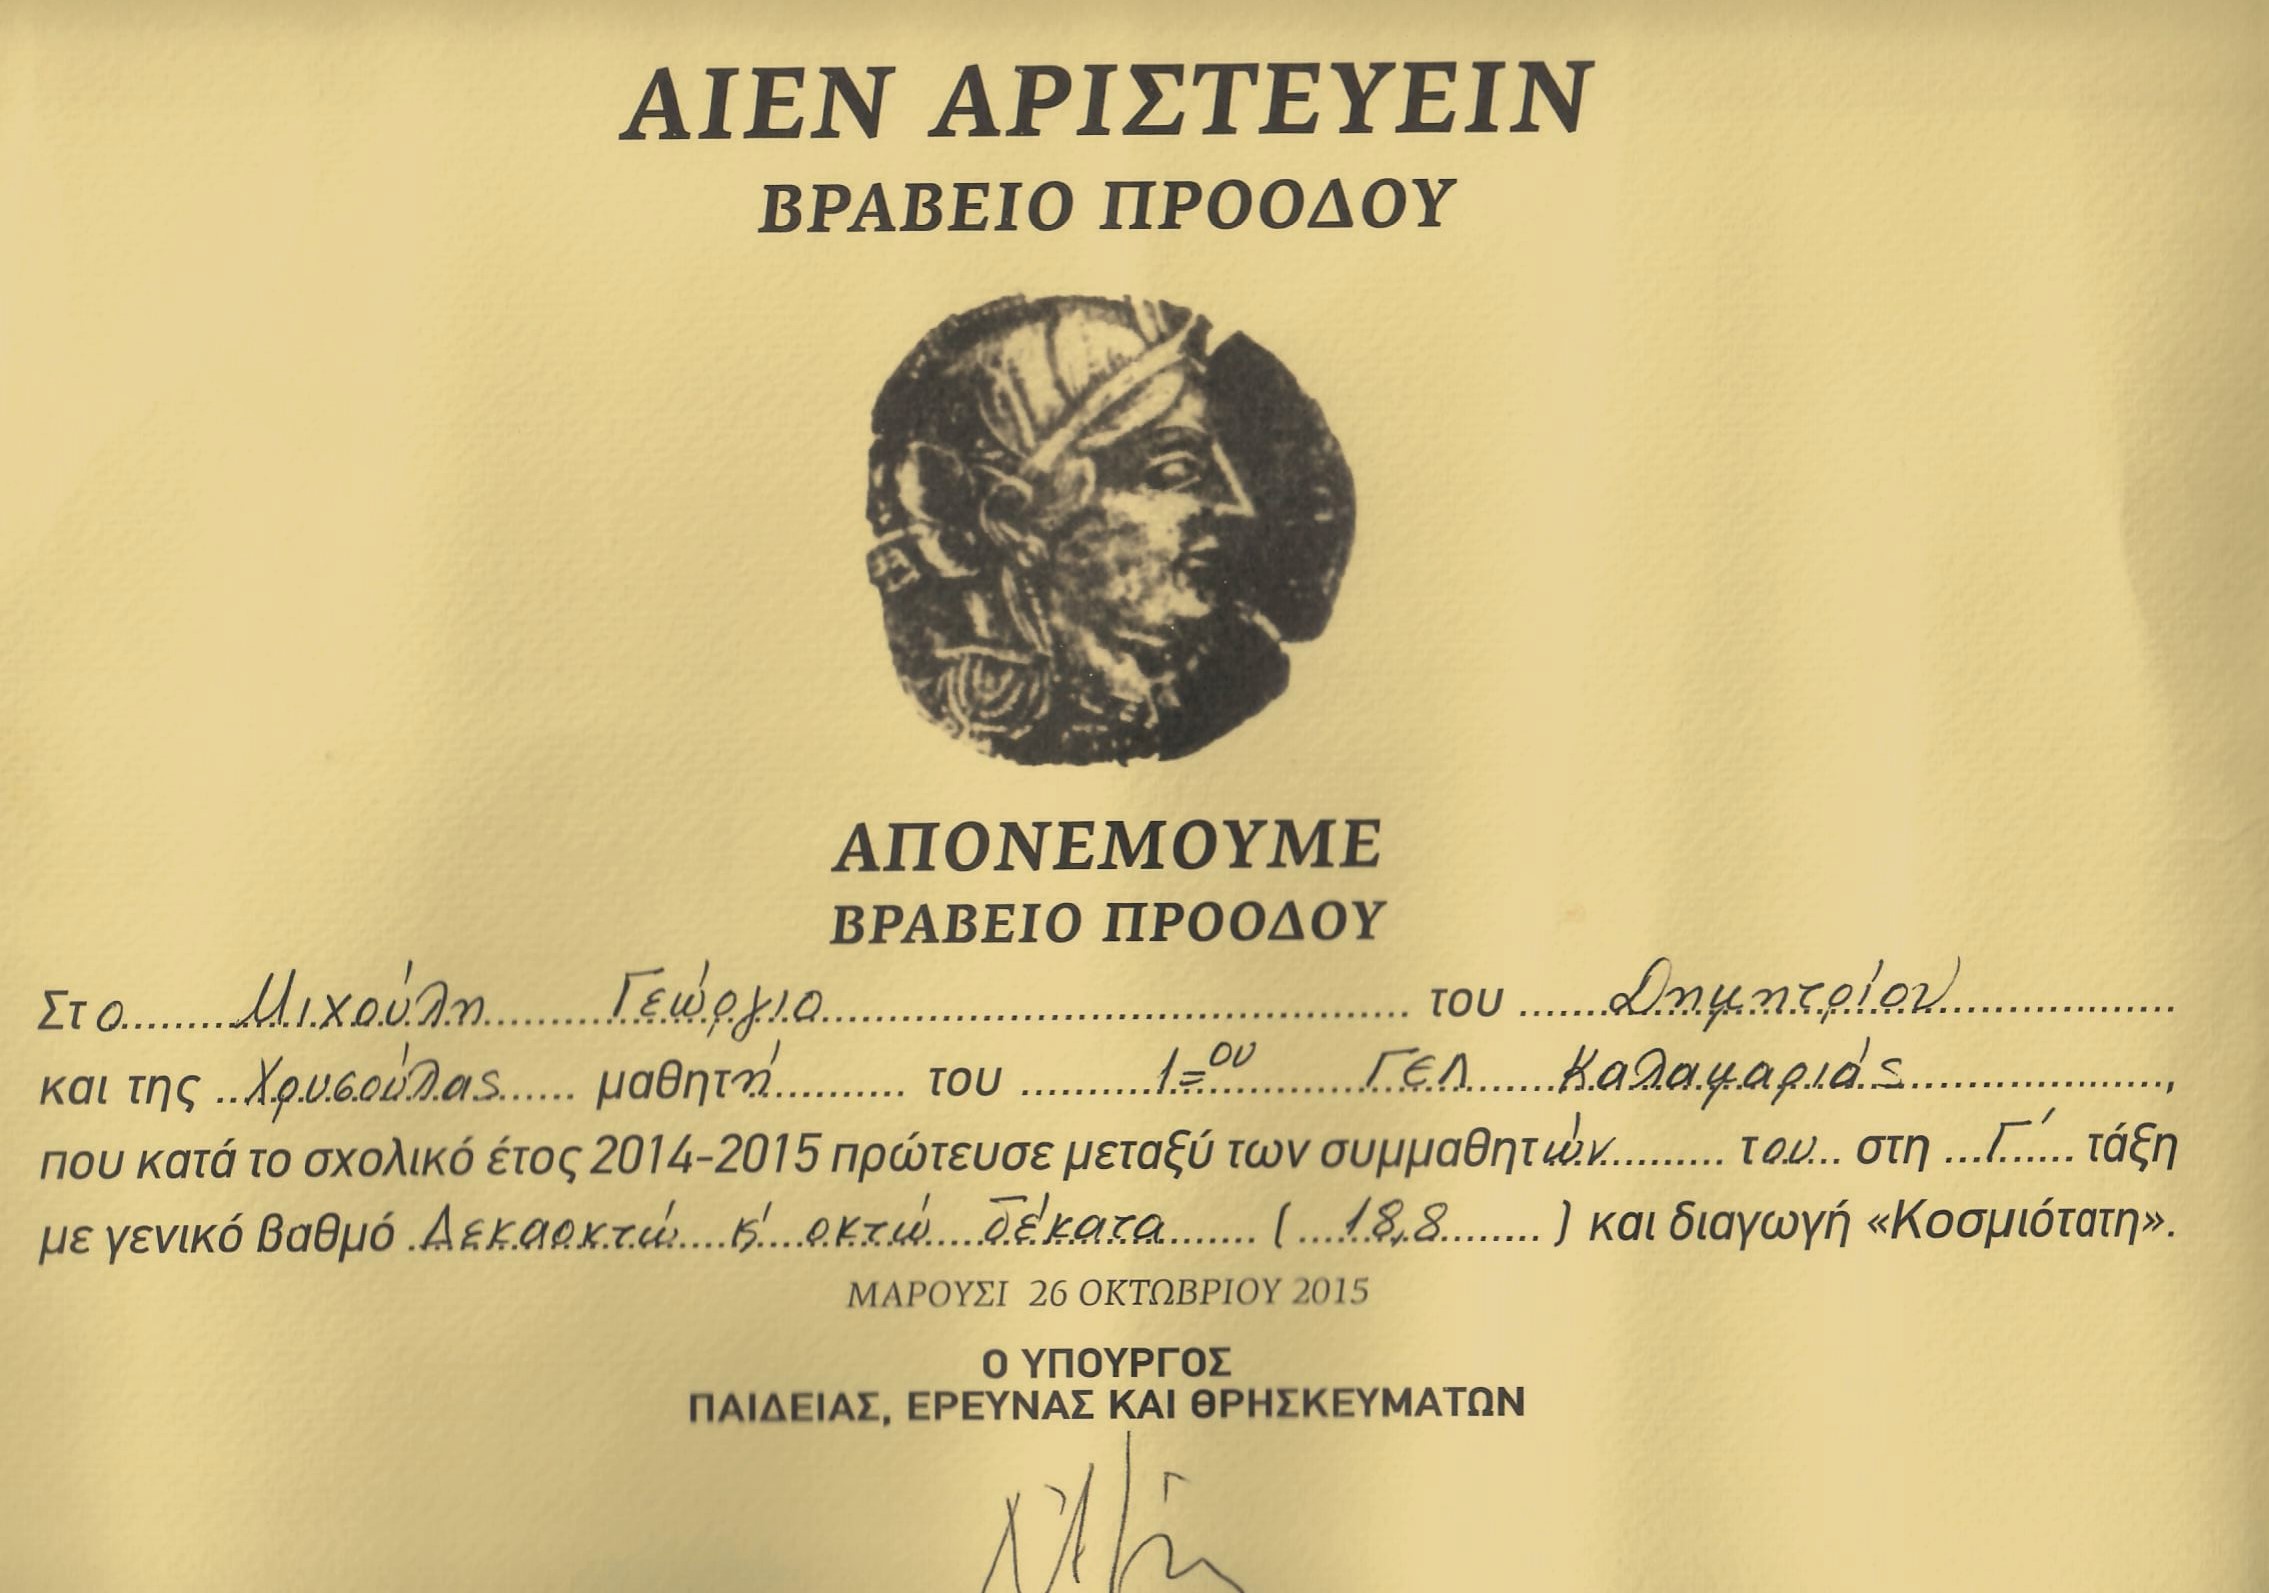 ΑΙΕΝ ΑΡΙΣΤΕΥΕΙΝ
ΒΡΑΒΕΙΟ ΠΡΟΟΔΟΥ
ΑΠΟΝΕΜΟΥΜΕ
ΒΡΑΒΕΙΟ ΠΡΟΟΔΟΥ
Στο Μιχούλη Γεώργιο του Δημητρίου
και της Χρυσούλας μαθητή του 1ου ΓΕΛ Καλαμαριάς,
που κατά το σχολικό έτος 2014-2015 πρώτευσε μεταξύ των συμμαθητών του στη Γ' τάξη
με γενικό βαθμό Δεκαοκτώ κ' οκτώ δέκατα (18,8) και διαγωγή «Κοσμιότατη».
ΜΑΡΟΥΣΙ 26 ΟΚΤΩΒΡΙΟΥ 2015
Ο ΥΠΟΥΡΓΟΣ
ΠΑΙΔΕΙΑΣ, ΕΡΕΥΝΑΣ ΚΑΙ ΘΡΗΣΚΕΥΜΑΤΩΝ